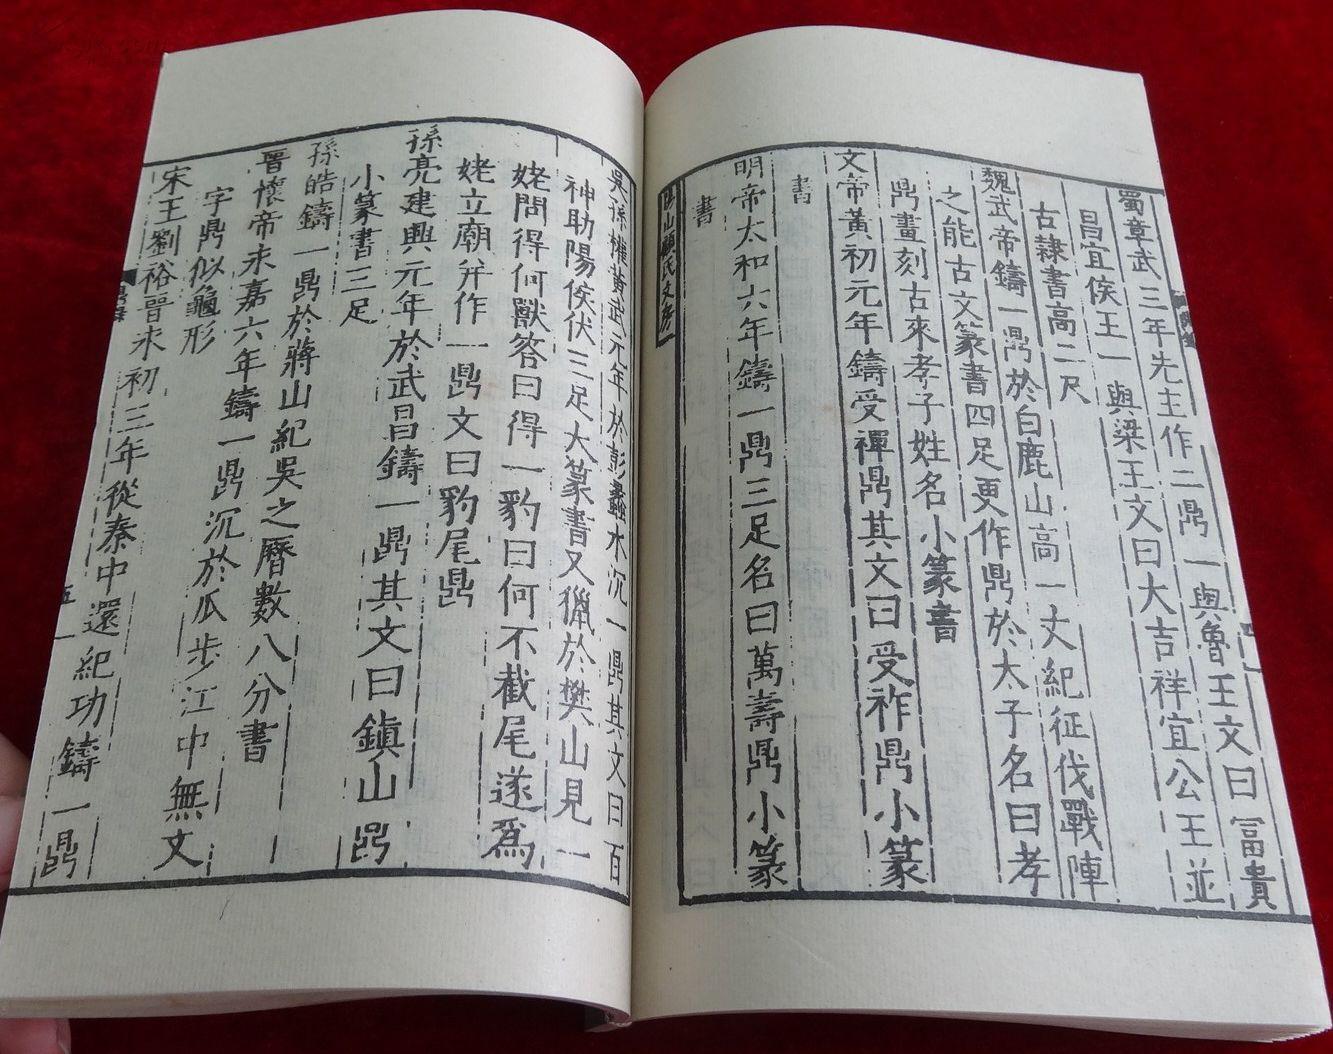 蜀章武三年先主作二鼎一與魯王文曰冨貴
昌宜侯王一與梁王文曰大吉祥宜公王並
古隷書高二尺
魏武帝鑄一鼎於白鹿山高一丈紀征伐戰陣
之能古文篆書四足更作鼎於太子名曰孝
鼎畫刻古來孝子姓名小篆書
文帝黃初元年鑄受禪鼎其文曰受祚鼎小篆
書
明帝太和六年鑄一鼎三足名曰萬壽鼎小篆
書
陽山顧氏文房
吳孫權黃武元年於彭蠡水沉一鼎其文曰百
神助陽侯伏三足大篆書又獵於樊山見一
姥問得何獸答曰得一豹曰何不截尾遂爲
姥立廟并作一鼎文曰豹尾鼎
孫亮建興元年於武昌鑄一鼎其文曰鎮山鼎
小篆書三足
孫皓鑄一鼎於蔣山紀吳之曆數八分書
晉懷帝永嘉六年鑄一鼎沉於瓜步江中無文
字鼎似龜形
宋王劉裕晉永初三年從秦中還紀功鑄一鼎
鼎錄
五